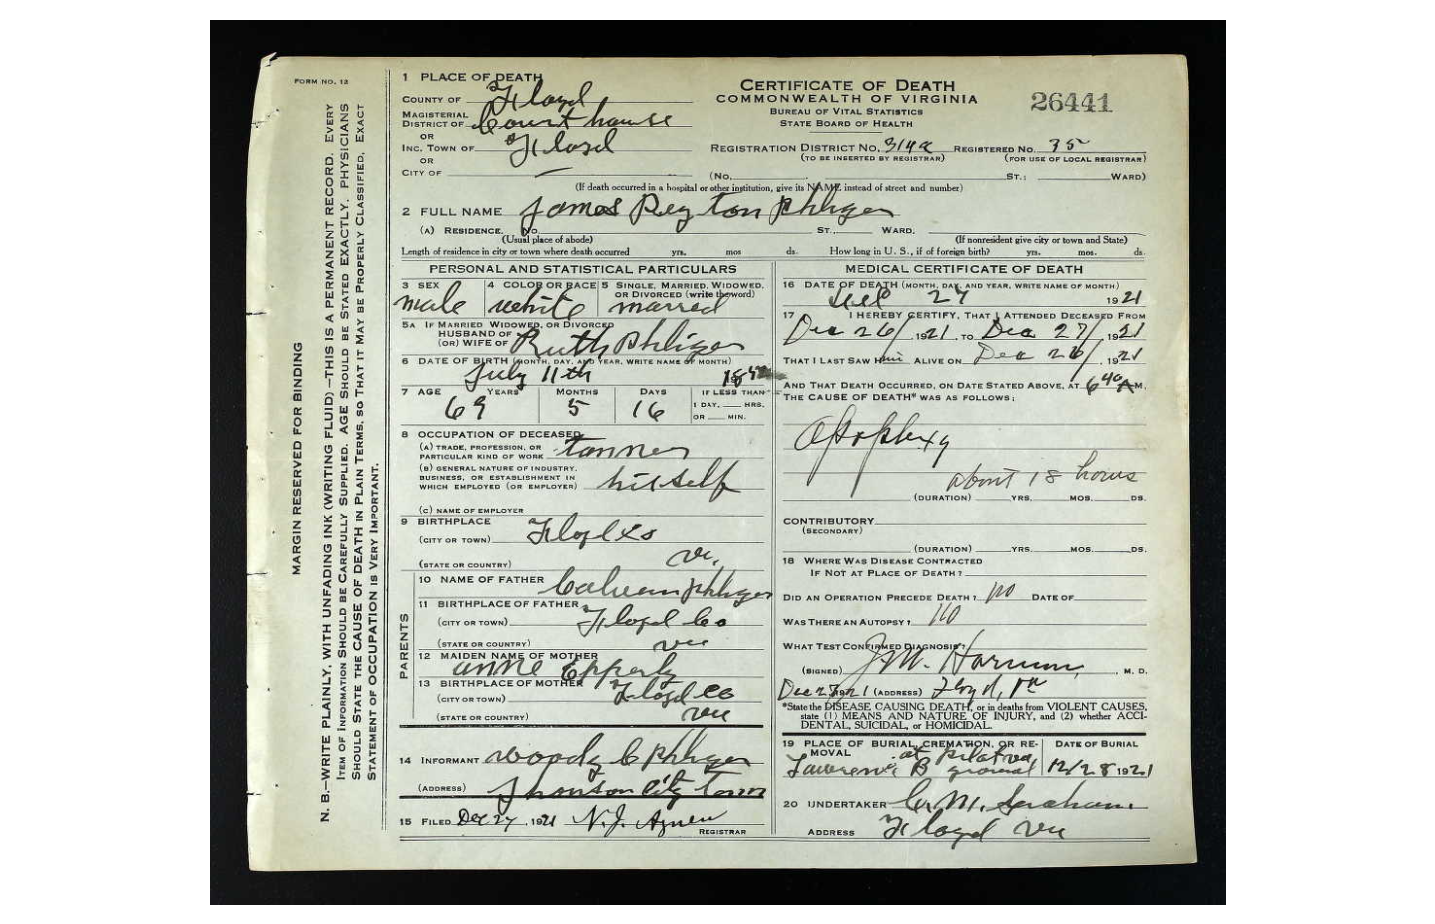 FORM NO. 12
MARGIN RESERVED FOR BINDING
N. B.—WRITE PLAINLY, WITH UNFADING INK (WRITING FLUID)—THIS IS A PERMANENT RECORD. EVERY
ITEM OF INFORMATION SHOULD BE CAREFULLY SUPPLIED. AGE SHOULD BE STATED EXACTLY. PHYSICIANS
SHOULD STATE THE CAUSE OF DEATH IN PLAIN TERMS, SO THAT IT MAY BE PROPERLY CLASSIFIED. EXACT
STATEMENT OF OCCUPATION IS VERY IMPORTANT.
1 PLACE OF DEATH
COUNTY OF Floyd
MAGISTERIAL
DISTRICT OF Court house
OR
INC. TOWN OF Floyd
OR
CITY OF —
CERTIFICATE OF DEATH
COMMONWEALTH OF VIRGINIA
BUREAU OF VITAL STATISTICS
STATE BOARD OF HEALTH
26441
REGISTRATION DISTRICT NO. REGISTERED NO. 35
(TO BE INSERTED BY REGISTRAR) (FOR USE OF LOCAL REGISTRAR)
(NO. ST.; WARD)
(If death occurred in a hospital or other institution, give its NAME instead of street and number)
2 FULL NAME James Peyton Phlegar
(A) RESIDENCE. No. ST., WARD.
(Usual place of abode) (If nonresident give city or town and State)
Length of residence in city or town where death occurred yrs. mos ds. How long in U. S., if of foreign birth? yrs. mos. ds.
PERSONAL AND STATISTICAL PARTICULARS
3 SEX male
4 COLOR OR RACE white
5 SINGLE, MARRIED, WIDOWED,
OR DIVORCED (write the word)
married
5A IF MARRIED WIDOWED, OR DIVORCED
HUSBAND OF
(OR) WIFE OF Ruth Phlegar
6 DATE OF BIRTH (MONTH, DAY, AND YEAR, WRITE NAME OF MONTH)
July 11th
7 AGE YEARS MONTHS DAYS IF LESS THAN
69 5 16 1 DAY, HRS.
OR MIN.
8 OCCUPATION OF DECEASED
(A) TRADE, PROFESSION, OR
PARTICULAR KIND OF WORK tanner
(B) GENERAL NATURE OF INDUSTRY,
BUSINESS, OR ESTABLISHMENT IN
WHICH EMPLOYED (OR EMPLOYER) himself
(C) NAME OF EMPLOYER
9 BIRTHPLACE
(CITY OR TOWN) Floyd Co
(STATE OR COUNTRY) va.
PARENTS
10 NAME OF FATHER Phlegar
11 BIRTHPLACE OF FATHER
(CITY OR TOWN) Floyd Co
(STATE OR COUNTRY) va
12 MAIDEN NAME OF MOTHER
anne Epperly
13 BIRTHPLACE OF MOTHER
(CITY OR TOWN) Floyd co
(STATE OR COUNTRY) va
14 INFORMANT Woody C Phlegar
(ADDRESS) City Tenn
15 FILED Dec 27, 1921 N. J. Agnew
REGISTRAR
MEDICAL CERTIFICATE OF DEATH
16 DATE OF DEATH (MONTH, DAY, AND YEAR, WRITE NAME OF MONTH)
Dec 27 1921
17 I HEREBY CERTIFY, THAT I ATTENDED DECEASED FROM
Dec 26/, 1921, TO Dec 27/, 1921
THAT I LAST SAW Him ALIVE ON Dec 26/, 1921
AND THAT DEATH OCCURRED, ON DATE STATED ABOVE, AT 6 40 A M.
THE CAUSE OF DEATH* WAS AS FOLLOWS:
Apoplexy
about 18 hours
(DURATION) YRS. MOS. DS.
CONTRIBUTORY
(SECONDARY)
(DURATION) YRS. MOS. DS.
18 WHERE WAS DISEASE CONTRACTED
IF NOT AT PLACE OF DEATH?
DID AN OPERATION PRECEDE DEATH? no DATE OF
WAS THERE AN AUTOPSY? no
WHAT TEST CONFIRMED DIAGNOSIS?
(SIGNED) J M. Harman, M. D.
Dec 27 1921 (ADDRESS) Floyd, Va
*State the DISEASE CAUSING DEATH, or in deaths from VIOLENT CAUSES,
state (1) MEANS AND NATURE OF INJURY, and (2) whether ACCI-
DENTAL, SUICIDAL, or HOMICIDAL.
19 PLACE OF BURIAL, CREMATION, OR RE-
MOVAL DATE OF BURIAL
at
Lawrence B ground 12/28 1921
20 UNDERTAKER C. M. Graham
ADDRESS Floyd va